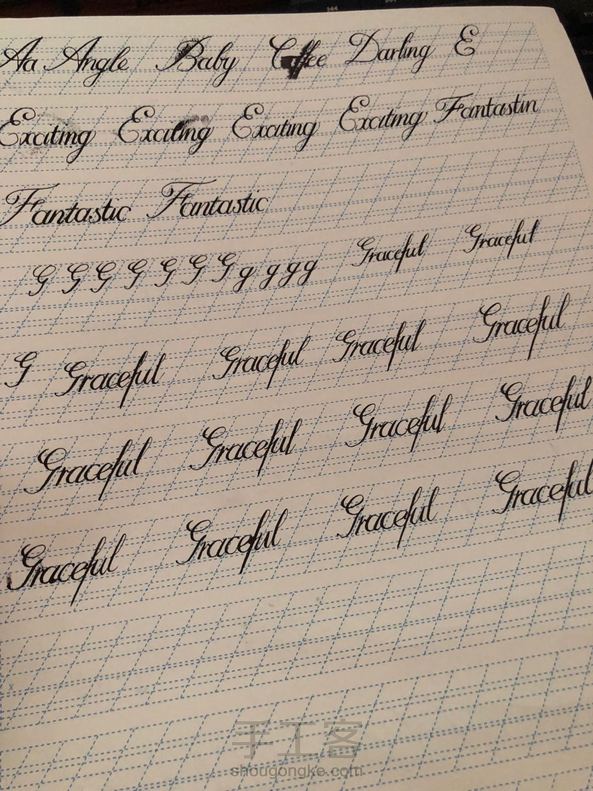 Aa Angle Baby Coffee Darling E
Exciting Exciting Exciting Exciting Fantastin
Fantastic Fantastic
G G G G G G G g g g g Graceful Graceful
G Graceful Graceful Graceful Graceful
Graceful Graceful Graceful Graceful
Graceful Graceful Graceful Graceful
手工客
shougongke.com